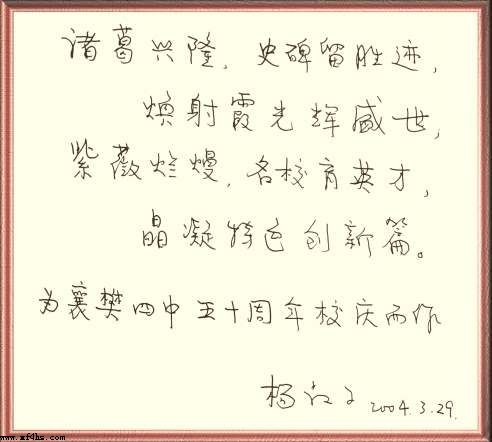 诸葛兴隆，史碑留胜迹，
焕射霞光辉盛世，
紫薇烂熳，名校育英才，
晶凝特色创新篇。
为襄樊四中五十周年校庆而作
杨
2004.3.29.
www.xf4hs.com